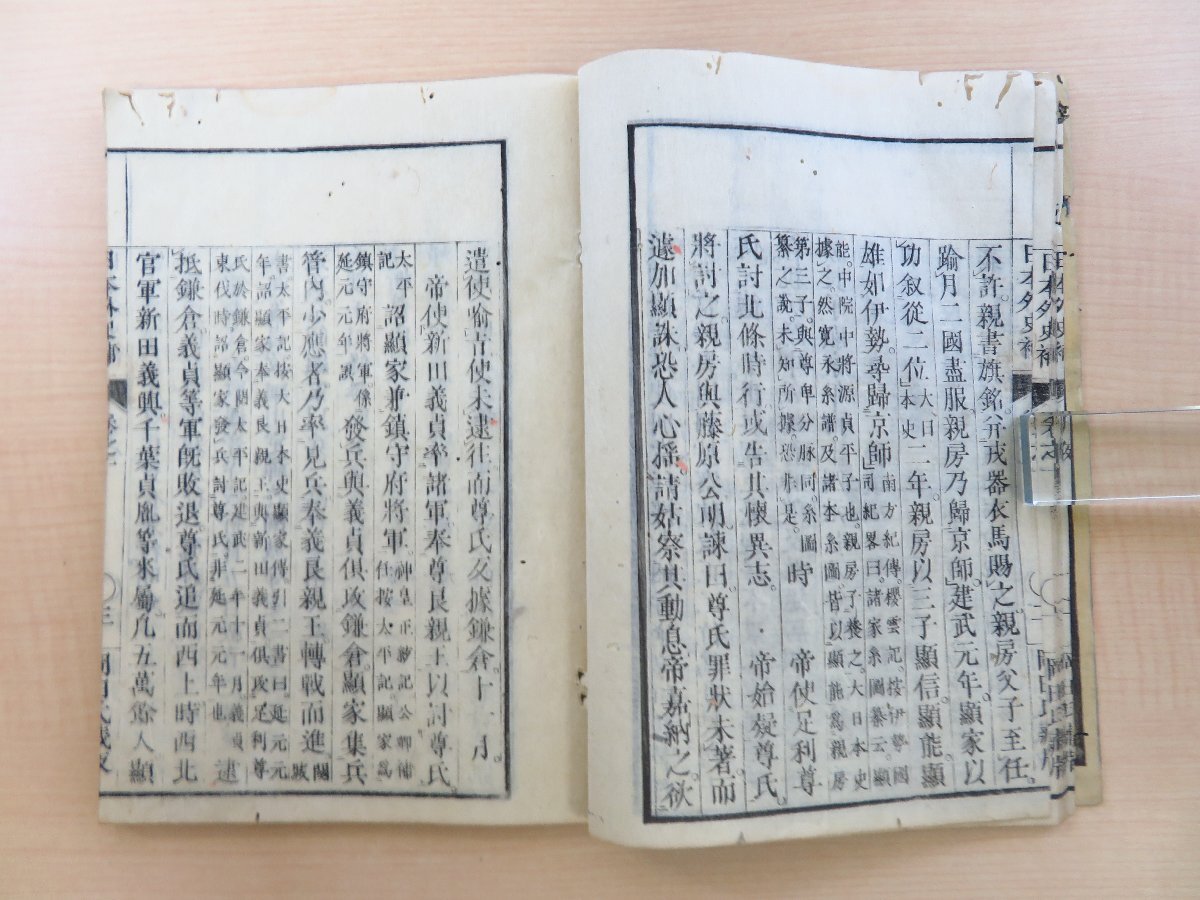 不許。親書旗銘、幷戎器衣馬賜之。親房父子至任。
踰月二國盡服。親房乃歸京師。建武元年。顯家以
功叙從二位。大日本史二年。親房以三子顯信。顯能。顯
雄如伊勢。尋歸京師。南方紀傳。櫻雲記。按伊勢國司紀畧曰。諸家系圖纂云。顯
能。中院中將源貞平子也。親房子養之。大日本史
據之。然寬永系譜。及諸本系圖皆以顯能爲親房
第三子。與尊卑分脉同。系圖
纂之說。未知所據。恐非是。時 帝使足利尊
氏討北條時行。或告其懷異志。 帝始疑尊氏。
將討之。親房與藤原公明諫曰。尊氏罪狀未著。而
遽加顯誅。恐人心搖。請姑察其動息。帝嘉納之。欲
遣使喻旨。使未遽往。而尊氏反據鎌倉。十一月。
帝使新田義貞率諸軍奉尊良親王以討尊氏。
太平記 詔顯家兼鎮守府將軍。神皇正統記公卿補任按太平記顯家爲
鎮守府將軍。係
延元元年。誤 發兵與義貞俱攻鎌倉。顯家集兵
管內。少應者。乃率見兵奉義良親王轉戰而進。關城
書太平記按大日本史顯家傳引二書曰延元元
年詔顯家奉義良親王與新田義貞俱攻足利尊
氏於鎌倉今閱太平記建武二年十一月義貞
東伐時詔顯家發兵討尊氏。非延元元年也 逮
抵鎌倉。義貞等軍旣敗退。尊氏追而西上。時西北
官軍新田義興千葉貞胤等來屬。凡五萬餘人。顯
日本外史補
日本外史補